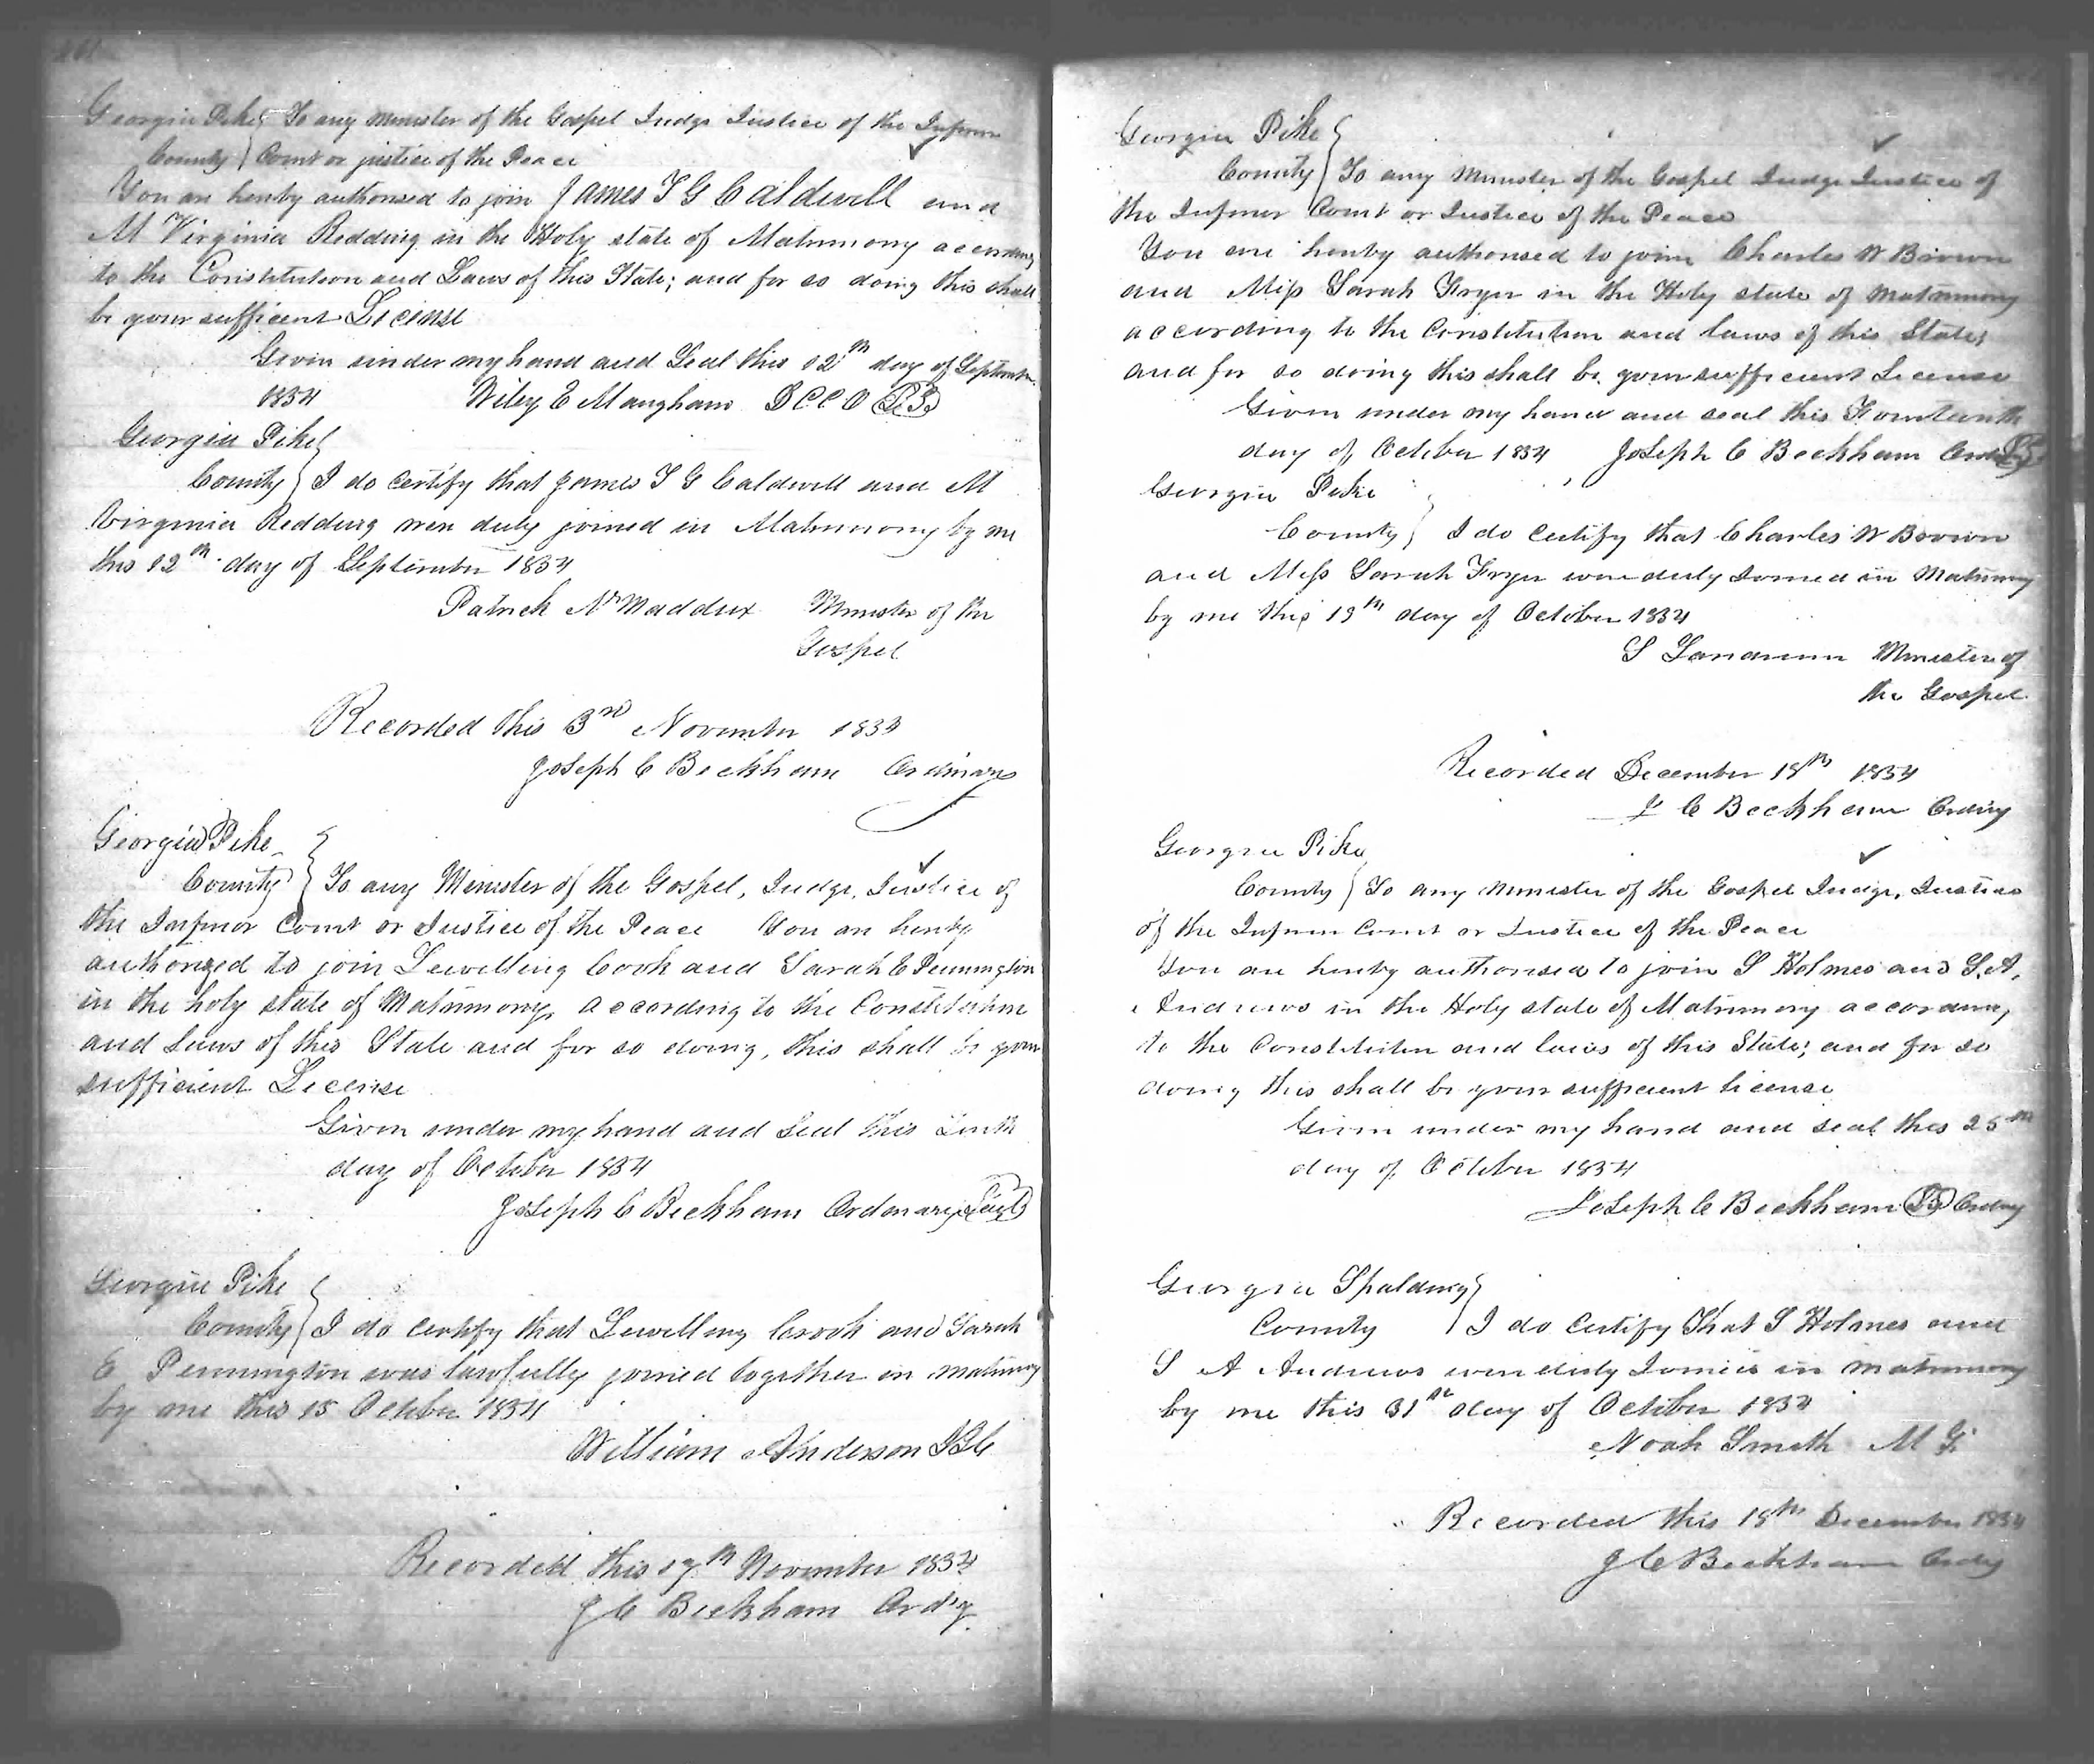 Georgia Pike } To any Minister of the Gospel Judge Justice of the Inferior
County } Court or justice of the Peace
You are hereby authorised to join James T G Caldwell and
M Virginia Redding in the Holy state of Matrimony according
to the Constitution and Laws of this State; and for so doing this shall
be your sufficent License
Given under my hand and Seal this 12th day of September
1854 Wiley E Mangham D C C O (L.S.)
Georgia Pike }
County } I do certify that James T G Caldwell and M
Virginia Redding were duly joined in Matrimony by me
this 12th day of September 1854
Patrick N Maddux Minister of the
Gospel
Recorded this 3rd November 1854
Joseph C Beckham Ordinary
Georgia Pike }
County } To any Minister of the Gospel, Judge, Justice of
the Inferior Court or Justice of the Peace You are hereby
authorized to join Lewelling Cook and Sarah E Pennington
in the holy state of Matrimony, according to the Constitution
and Laws of this State and for so doing, this shall be your
sufficient License
Given under my hand and seal this Tenth
day of October 1854
Joseph C Beckham Ordinary (Seal)
Georgia Pike }
County } I do certify that Lewelling Cook and Sarah
E Pennington was lawfully joined together in matrimony
by me this 15 October 1854
William Anderson J I C
Recorded this 17th November 1854
J C Beckham Ord'y
Georgia Pike }
County } To any Minister of the Gospel Judge Justice of
the Inferior Court or Justice of the Peace
You are hereby authorised to join Charles W Brown
and Miss Sarah Fryer in the Holy state of matrimony
according to the Constitution and laws of this State;
and for so doing this shall be your sufficient License
Given under my hand and seal this Fourteenth
day of October 1854 Joseph C Beckham Ord (L.S.)
Georgia Pike
County } I do certify that Charles W Brown
and Miss Sarah Fryer were duly Joined in Matrimony
by me this 19th day of October 1854
S Landrum Minister of
the Gospel
Recorded December 18th 1854
J C Beckham Ordiny
Georgia Pike
County } To any Minister of the Gospel Judge, Justice
of the Inferior Court or Justice of the Peace
You are hereby authorised to join S Holmes and S. A.
Andrews in the Holy state of Matrimony according
to the Constitution and laws of this State; and for so
doing this shall be your sufficient license
Given under my hand and seal this 25th
day of October 1854
Joseph C Beckham (L.S.) Ordiny
Georgia Spalding }
County } I do Certify That S Holmes and
S A Andrews were duly Joined in matrimony
by me this 31st day of October 1854
Noah Smith M G
Recorded this 18th December 1854
J C Beckham Ordy